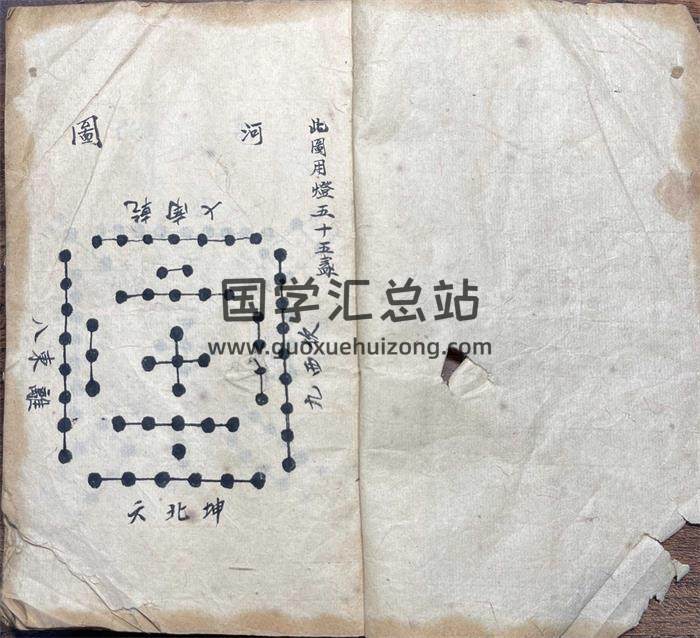 此圖用燈五十五盞
河圖
七南乾
八東離
九西坎
六北坤
国学汇总站
www.guoxuehuizong.com